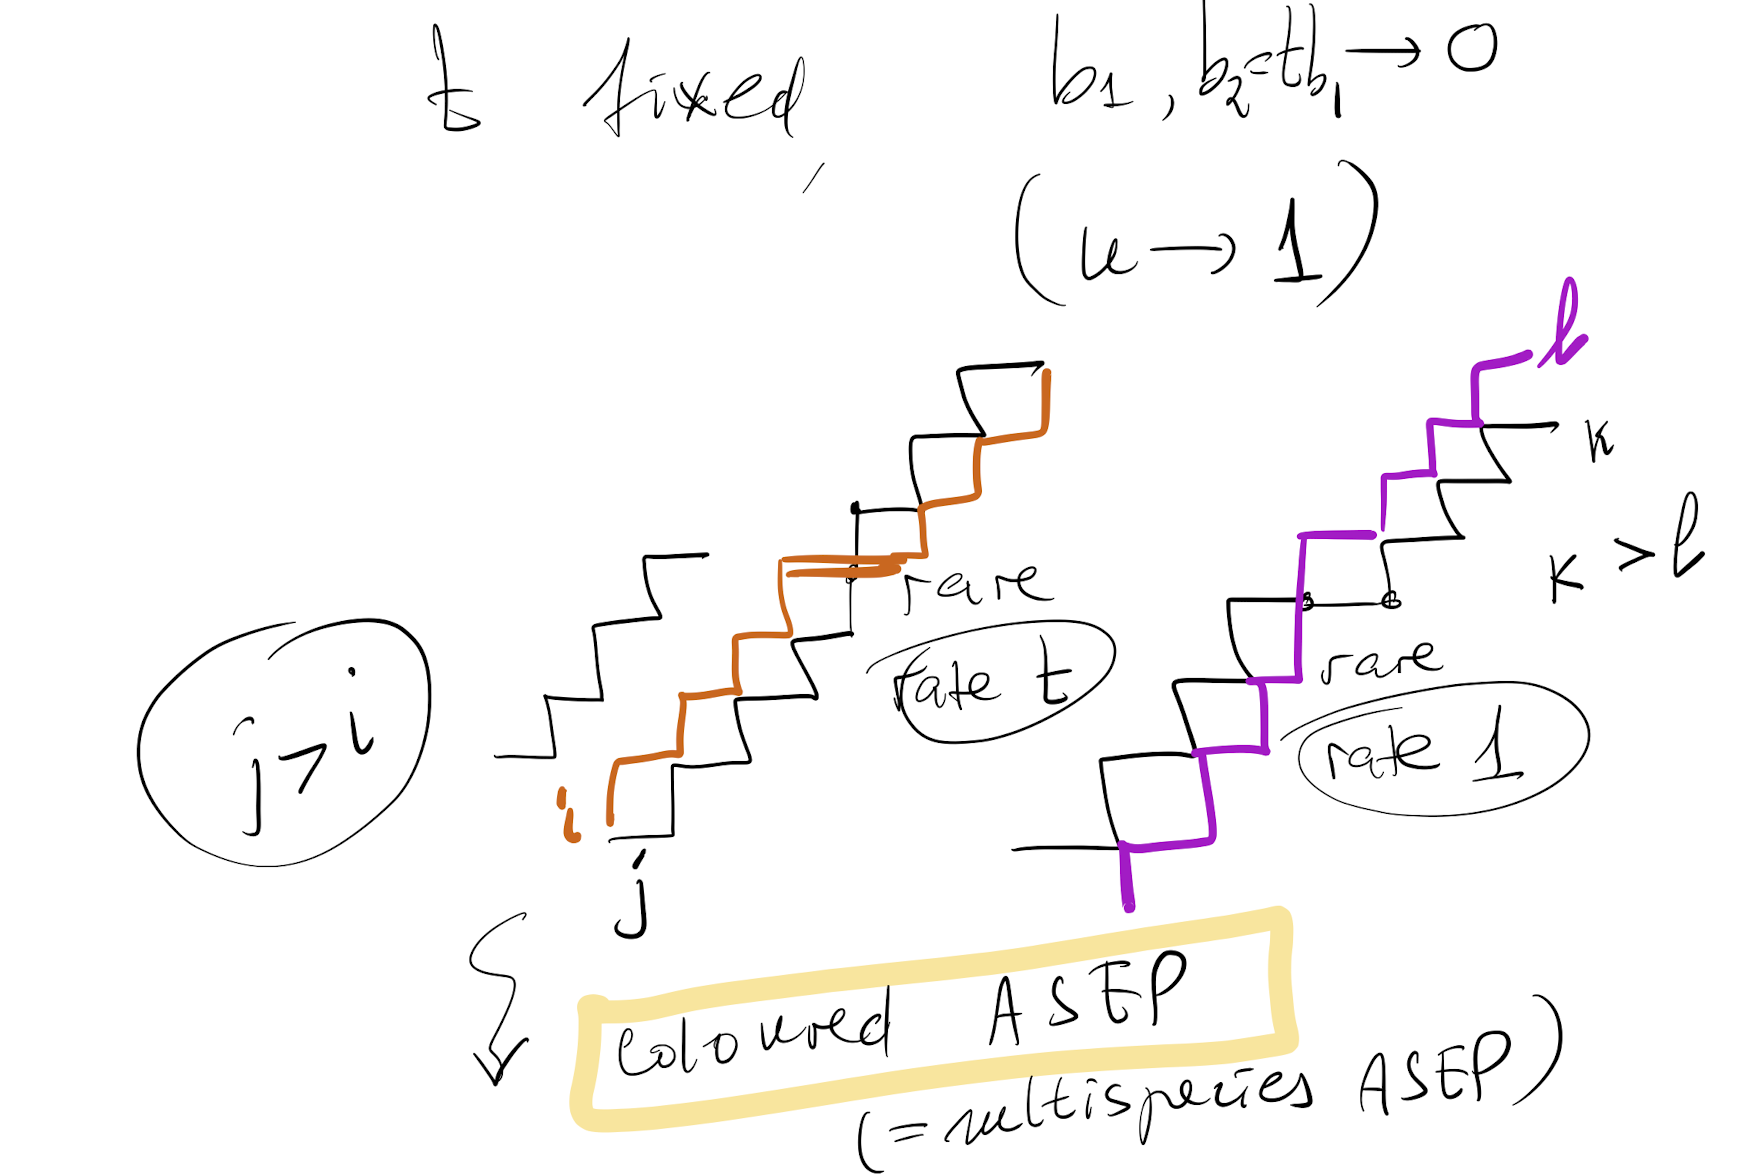 t fixed, b₁, b₂=tb₁ → 0
(u → 1)
l
k
k > l
rare
rate t
rare
rate 1
j > i
i
j
coloured ASEP
(= multispecies ASEP)